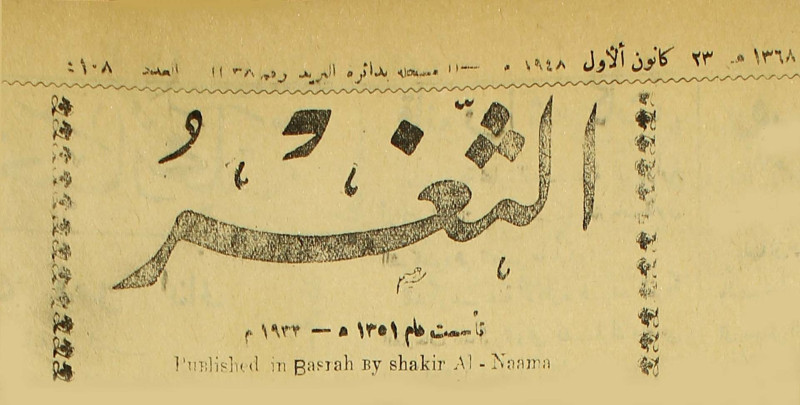 ١٣٦٨ هـ ٢٣ كانون ألاول ١٩٤٨ م —١١ مسجله بدائره البريد رقم ١١٣٨ العدد
الثغر
تأسست عام ١٣٥١ ه — ١٩٣٣ م
Published in Basrah By shakir Al - Naama